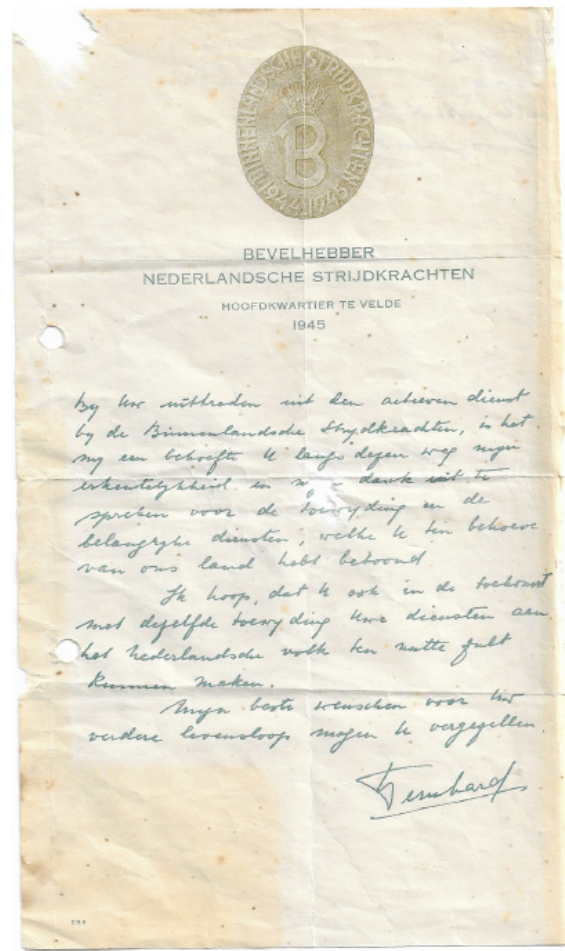 BINNENLANDSCHE STRIJDKRACHTEN
B
1944-1945
BEVELHEBBER
NEDERLANDSCHE STRIJDKRACHTEN
HOOFDKWARTIER TE VELDE
1945
By Uw uittreden uit den actieven dienst
by de Binnenlandsche Strydkrachten, is het
my een behoefte U langs dezen weg myn
erkentelykheid en dank uit te
spreken voor de toewyding en de
belangryke diensten, welke U ten behoeve
van ons land hebt betoond
Ik hoop, dat U ook in de toekomst
met dezelfde toewyding Uwe diensten aan
het Nederlandsche volk ten nutte zult
kunnen maken.
Myn beste wenschen voor Uw
verdere levensloop mogen U vergezellen.
Bernhard